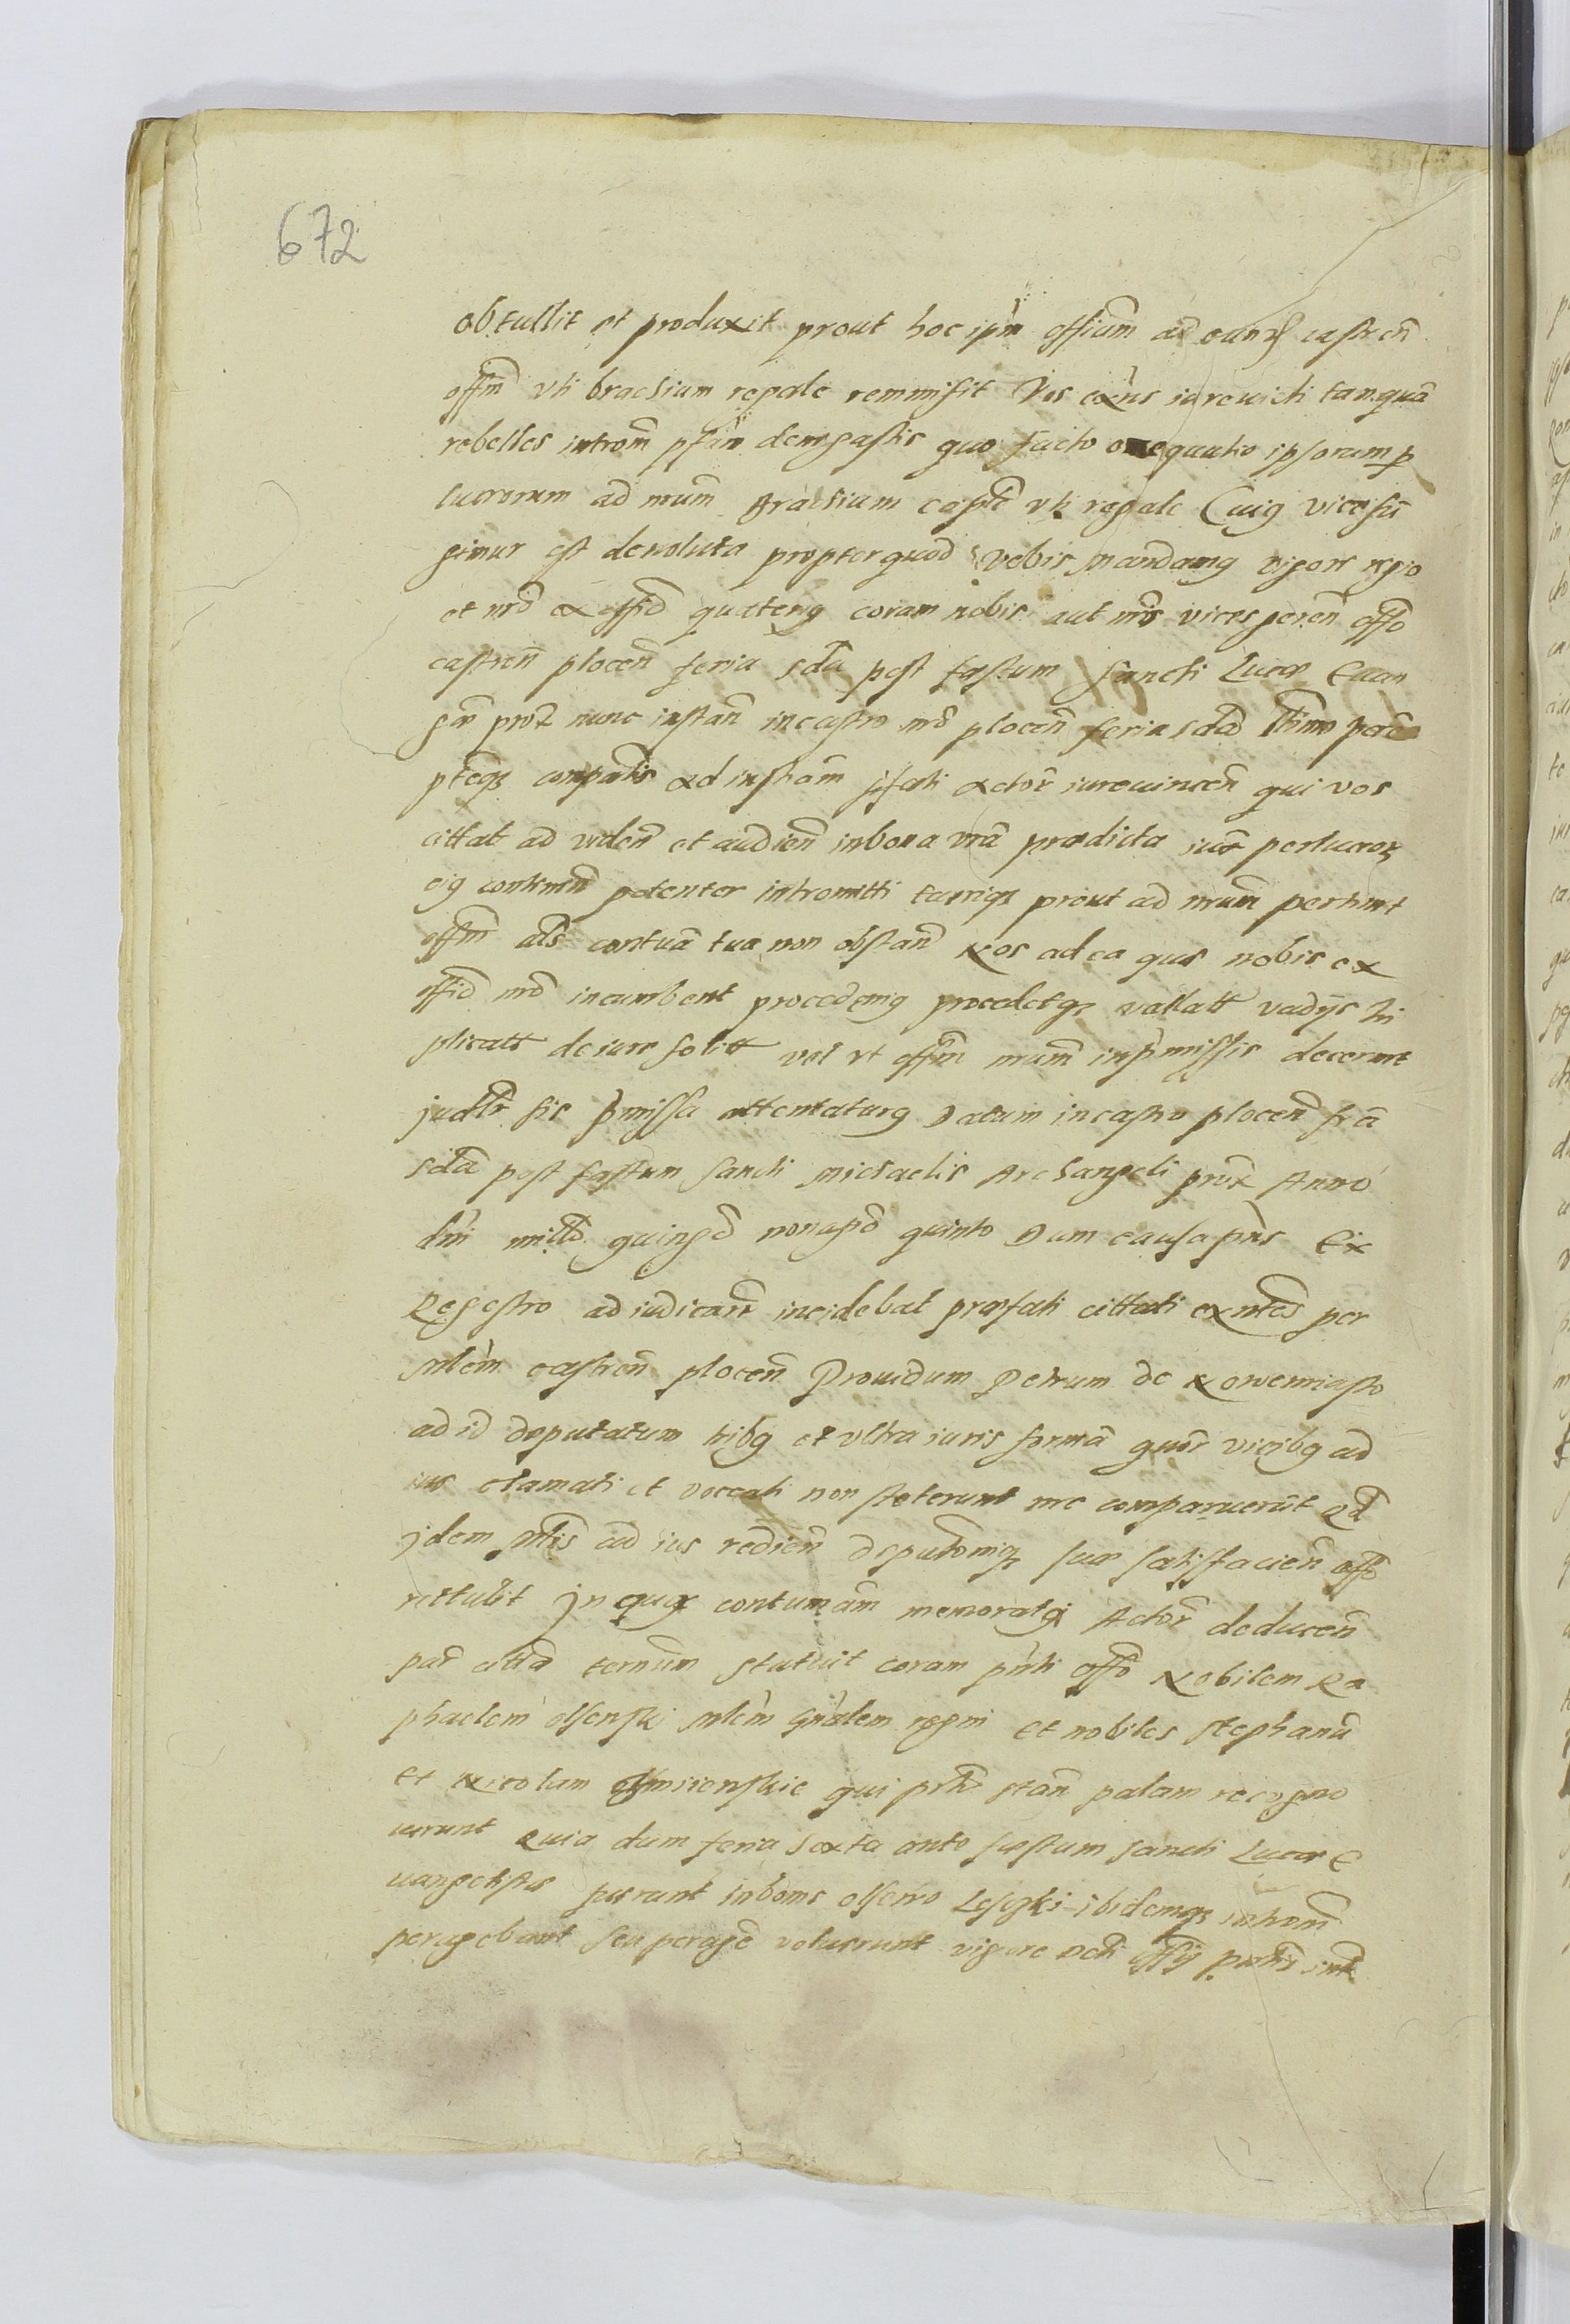 672
obtullit et produxit prout hoc ipm̃ offium̃ ad eand castren̄
offm̃ vti brachium regale remmisit Vos iurevicti tanquã
rebelles introm̃ pfam̃ denegastis quo facto exequutio ipsorum p
lucrorum ad nrum̃ Brachium capt̃ vti regale Cuiq vice fũ
gimur est devoluta propterquod vobis mandamq vigore regio
et nrõ ex offõ quatenq coram nobis aut nrõ vices geren̄ offõ
castren̄ plocen̄ feria sda post festum Sancti Lucæ Evan
gæ prox̃ nunc instan̄ in castro nrõ plocen̄ feria sda ltimo perẽ
ptẽqz compatis ad instam̃ pfati actor̃ iurevincen̄ qui vos
cittat ad viden̄ et audien̄ in bona vrã prædicta iure perlucror
eiq continen̄ potenter intromitti tamqz prout ad nrum̃ pertinet
offm̃ als contuã tua non obstan̄ Nos ad ea quæ nobis ex
offiõ nrõ incumbent procedemq procedetqz vallatt vadijs tri
plicatt de iure solitt vel vt offm̃ nrum̃ in pmissis decernet
judr̃ sic pmissa attentaturq Datum in castro plocen̄ frã
sdã post festum Sancti Michaelis Archangeli prox̃ Anno
dñi milld quingd nonagd quinto Dum causa pñs Ex
Regestro ad iudican̄ incidebat præfati cittati exntes per
mlem̃ castren̄ plocen̄ Providum Petrum de Nowemiasto
ad id deputatum tribq et vltra iuris formã quor̃ vicibq ad
ius clamati et voccati non steterunt nec comparuerũt Qd
jdem mlis ad ius redien̄ deputõniqz suæ satisfacien̄ offõ
rettulit Jn quor̃ contumam̃ memoratq Actor̃ deducen̄
par̃ citta ternum̃ statuit coram pñti offõ Nobilem Ra
phaelem olsenski mlem̃ gñalem regni et nobiles Stephanũ
et Nicolum qui pñtr̃ stan̄ palam recogno
verunt Quia dum feria sexta ante festum sancti Lucæ E
vangelistæ fuerunt in bonis olsewo ibidemqz introm̃
peragebant seu peragẽ voluerunt vigore Dcti offij